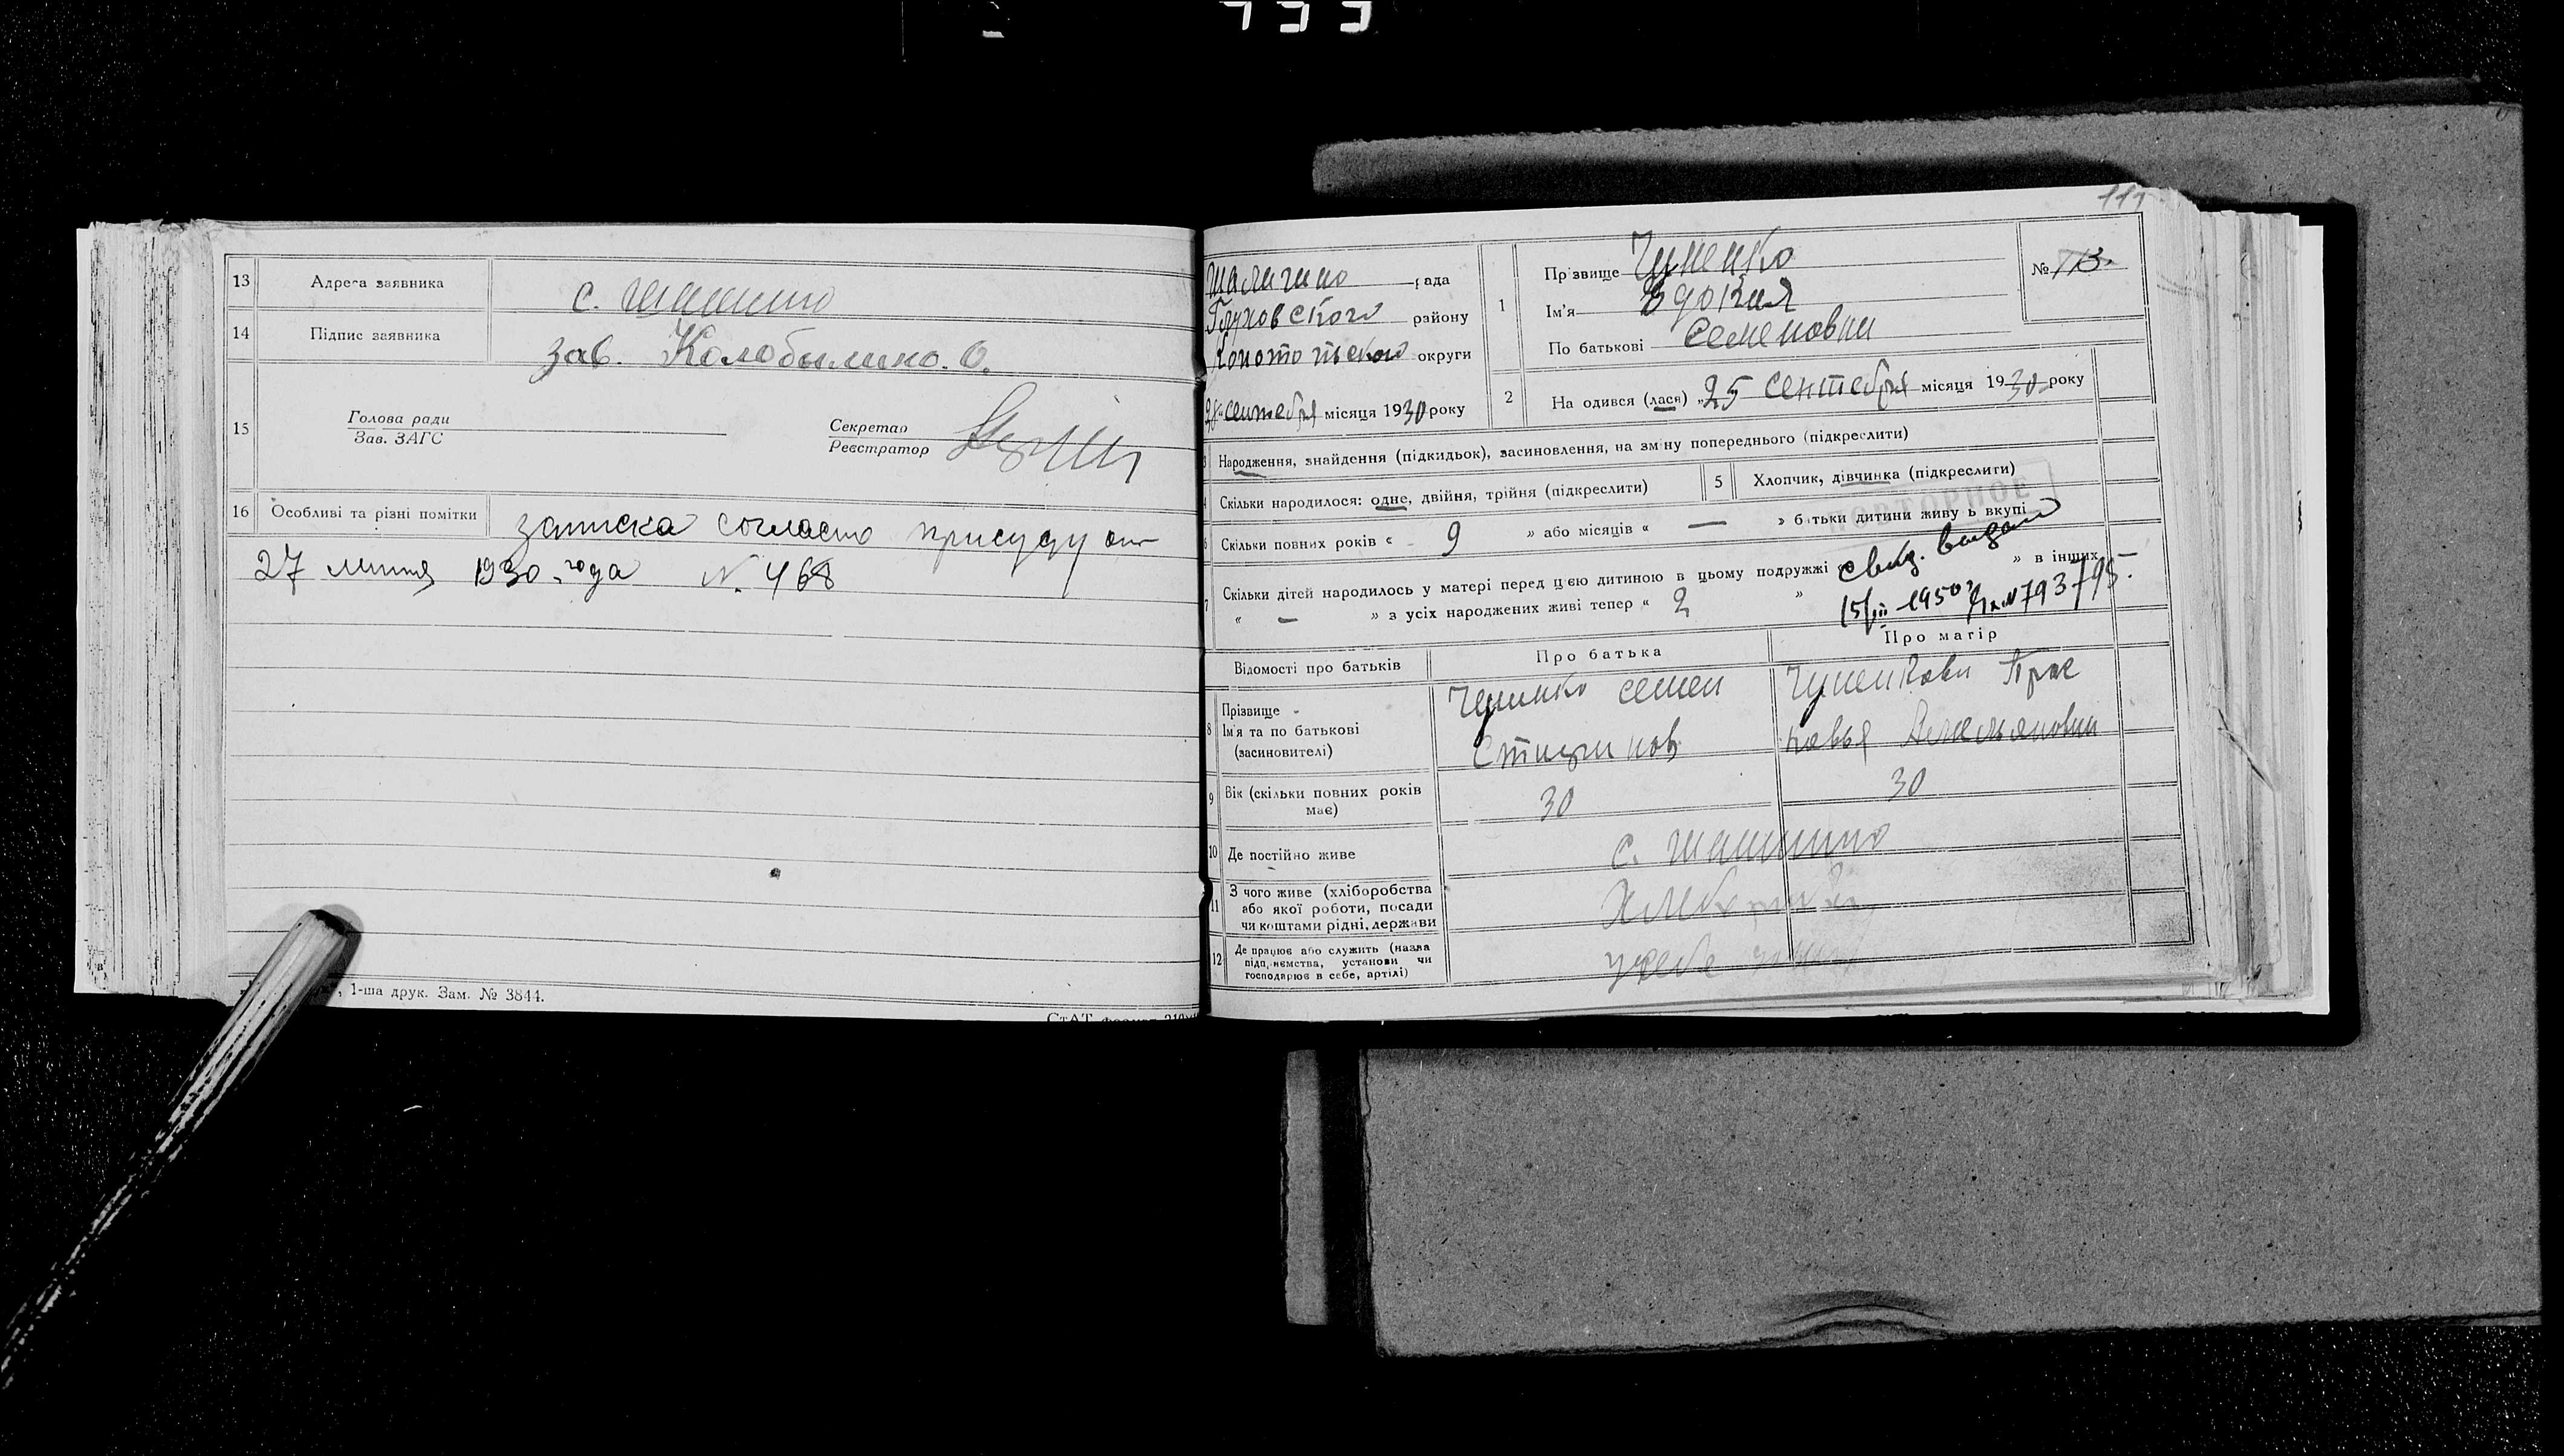 13 Адреса заявника с. Шалигино
14 Підпис заявника зав. Колобылино. О.
15 Голова ради
Зав. ЗАГС
Секретар
Реєстратор
16 Особливі та різні помітки записка согласно присуду от
27 липня 1930 года N. 468
1-ша друк. Зам. № 3844.
111
Шалигино рада
Глуховского району
Конотопского округи
28 сентября місяця 1930 року
1 Прізвище Чуненко
Ім'я Эдокия
По батькові Семеновни
№ 113.
2 Народився (лася) „25 сентебря місяця 1930 року
Народження, знайдення (підкидьок), засиновлення, на зміну попереднього (підкреслити)
Скільки народилося: одне, двійня, трійня (підкреслити)
5 Хлопчик, дівчинка (підкреслити)
ПОВТОРНОЕ
6 Скільки повних років « 9 » або місяців « — » батьки дитини живуть вкупі
7 Скільки дітей народилось у матері перед цією дитиною в цьому подружжі » в інших
« — » з усіх народжених живі тепер « 2 »
свид. выдано
15/III-1950 г. № 793795.
Відомості про батьків
Про батька
Про матір
8 Прізвище
Ім'я та по батькові
(засиновителі)
Чуненко Семен
Чуненкови Прас
ковья Амельяновни
9 Вік (скільки повних років
має)
30
30
10 Де постійно живе с. Шалигино
11 З чого живе (хліборобства
або якої роботи, посади
чи коштами рідні, держави
12 Де працює або служить (назва
підприємства, установи чи
господарює в себе, артілі)
у себе